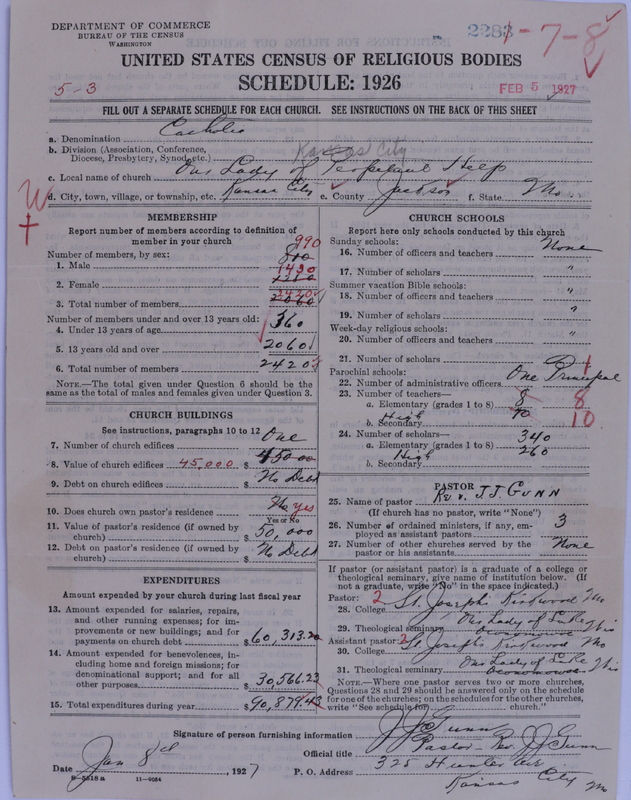 DEPARTMENT OF COMMERCE
BUREAU OF THE CENSUS
WASHINGTON
2283
1-7-8
UNITED STATES CENSUS OF RELIGIOUS BODIES
SCHEDULE: 1926
5-3
FEB 5 1927
FILL OUT A SEPARATE SCHEDULE FOR EACH CHURCH. SEE INSTRUCTIONS ON THE BACK OF THIS SHEET
a. Denomination Catholic
b. Division (Association, Conference, Diocese, Presbytery, Synod, etc.) Kansas City
c. Local name of church Our Lady of Perpetual Help
d. City, town, village, or township, etc. Kansas City e. County Jackson f. State Mo
MEMBERSHIP
Report number of members according to definition of member in your church
Number of members, by sex:
1. Male 990
2. Female 1430
3. Total number of members 2420
Number of members under and over 13 years old:
4. Under 13 years of age 360
5. 13 years old and over 2060
6. Total number of members 2420
NOTE.—The total given under Question 6 should be the same as the total of males and females given under Question 3.
CHURCH BUILDINGS
See instructions, paragraphs 10 to 12
7. Number of church edifices One
8. Value of church edifices 45,000. $ 45000
9. Debt on church edifices $ No Debt
10. Does church own pastor's residence No yes
Yes or No
11. Value of pastor's residence (if owned by church) $ 50,000
12. Debt on pastor's residence (if owned by church) $ No Debt
EXPENDITURES
Amount expended by your church during last fiscal year
13. Amount expended for salaries, repairs, and other running expenses; for improvements or new buildings; and for payments on church debt $ 60,313.20
14. Amount expended for benevolences, including home and foreign missions; for denominational support; and for all other purposes $ 30,566.23
15. Total expenditures during year $ 90,879.43
CHURCH SCHOOLS
Report here only schools conducted by this church
Sunday schools:
16. Number of officers and teachers None
17. Number of scholars "
Summer vacation Bible schools:
18. Number of officers and teachers "
19. Number of scholars "
Week-day religious schools:
20. Number of officers and teachers "
21. Number of scholars "
Parochial schools:
22. Number of administrative officers One Principal
23. Number of teachers—
a. Elementary (grades 1 to 8) 8 8
b. Secondary High 10 10
24. Number of scholars—
a. Elementary (grades 1 to 8) 340
b. Secondary High 260
PASTOR
25. Name of pastor Rev. J J GUNN
(If church has no pastor, write "None")
26. Number of ordained ministers, if any, employed as assistant pastors 3
27. Number of other churches served by the pastor or his assistants None
If pastor (or assistant pastor) is a graduate of a college or theological seminary, give name of institution below. (If not a graduate, write "No" in the space indicated.)
Pastor: 2
28. College St. Josephs Kirkwood Mo
29. Theological seminary Our Lady of Lake Oconomowoc Wis
Assistant pastor: 3
30. College St. Josephs Kirkwood Mo
31. Theological seminary Our Lady of Lake Oconomowoc Wis
NOTE.—Where one pastor serves two or more churches, Questions 28 and 29 should be answered only on the schedule for one of the churches; on the schedules for the other churches, write "See schedule for ........ church."
Signature of person furnishing information J J Gunn
Official title Pastor - Rev. J J Gunn
Date Jan 8th, 1927
P. O. Address 325 Hunter Ave
Kansas City Mo
8-5318 a 11-9084